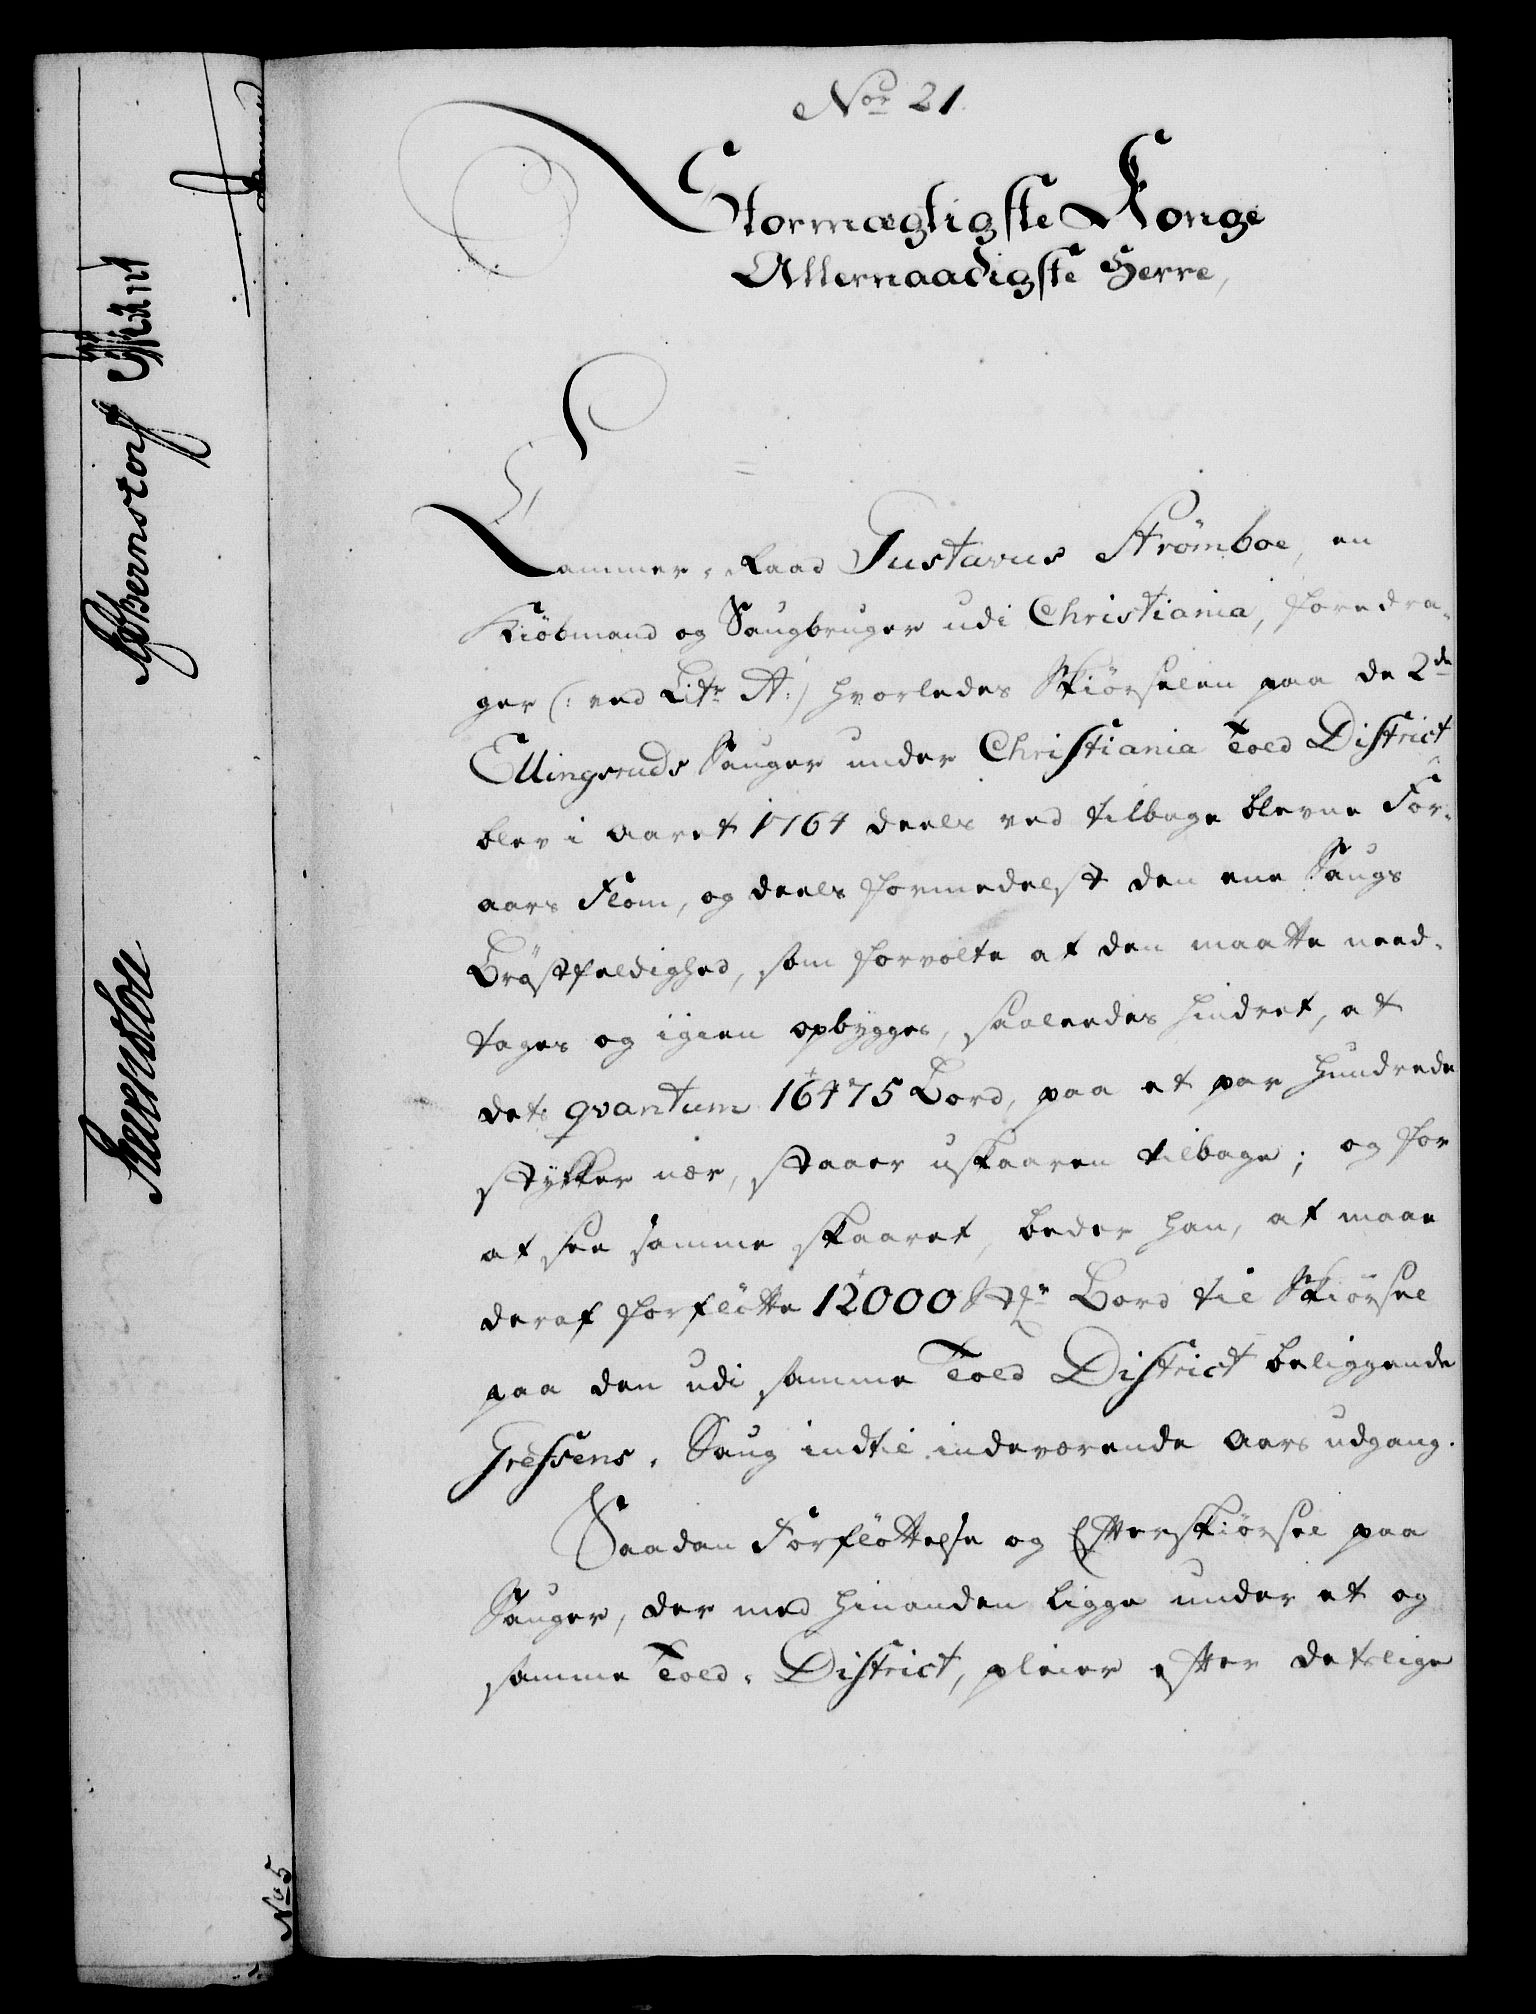 Nor 21.
Stormægtigste Konge
Allernaadigste Herre,
Cammer-Raad Gustavus Strømboe, en
Kiöbmand og Saugbruger udi Christiania, foredra-
ger (: ved Litr A:) hvorledes Skiörselen paa de 2de
Ellingsruds Sauger under Christiania Told District
blev i Aaret 1764 deels ved tilbage blevne For-
aars Flom, og deels formedelst den ene Saugs
Bröstfeldighed, som forvolte at den maatte need-
tages og igien opbygges, saaleedes hindret, at
dets qvantum 16475 Bord, paa et par hundrede
stykker nær, staaer uskaaren tilbage; og for
at see samme skaaret, beder han, at maae
deraf forflötte 12000 Stkr Bord til Skiörsel
paa den udi samme Told District beliggende
Gressens-Saug indtil indeværende Aars udgang.
Saadan Forflöttelse og Efterskiörsel paa
Sauger, der med hinanden ligge under et og
samme Told-District, pleier efter detslige
No 5
Bernstorff